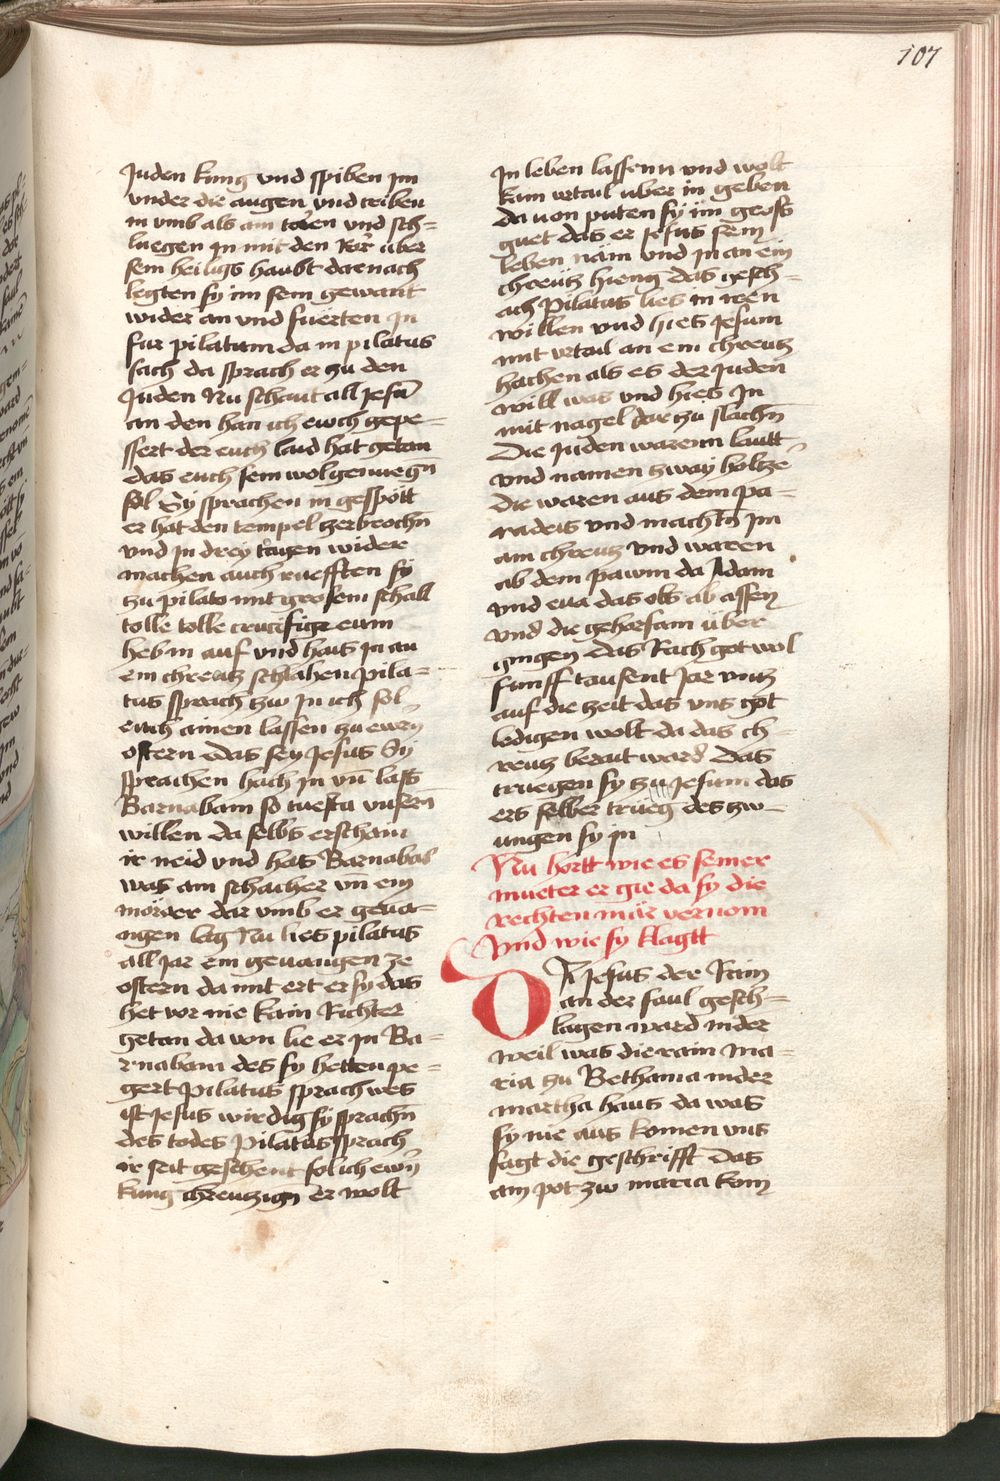 107
Juden kung vnd spiben Im
vnder die augen vnd triben
in vmb als ain toren vnd sch=
luegen In mit den Ror über
sein heiligs haubt darnach
legten sy im sein gewant
wider an vnd fuerten In
fur pilatum da in pilatus
sach da sprach er zu den
Juden Nu schaut all Jesū
an den han ich ewch gepe=
ssert der euch laid hat getan
das euch sein wol genuegn̄
sol Sy sprachen in gespött
er hat den tempel zerbrochn̄
vnd In drey tagen wider
machen auchruefften sy
zu pilato mit grossem schall
tolle tolle crucifige eum
heb in auf vnd haiss In an
ein chreutz schlahen pila=
tus sprach zw In ich sol
euch ainen lassen zu ewrn̄
ostern das sey Jesus Sy
sprachen hach In vn̄ lass
Barnabam so tuestu vnsern̄
willen da selbs erschain
ir neid vnd hass Barnabas
was ain schacher vn̄ ein
mörder dar vmb er geua=
ngen lag Nu lies pilatus
all Jar ein geuangen ze
ostern da mit ert er sy das
het vor nie kain Richter
getan da von lie er In Ba=
rnabam des sy hetten pe=
gert Pilatus sprach wes
ist Jesus wirdig sy sprachn̄
des todes Pilatus sprach
ir seit geschent sol ich ewrn̄
kung chreutzign Er wolt
In leben lassenn vnd wolt
kain vrtail über in geben
da uon puten sy im gross
guet das er Jesus sein
leben näm vnd In an ein
chreutz hieng das gesch=
ach Pilatus lies in iren
willen vnd hies Jesum
mit vrtail an ein chreutz
hachen als es der Juden
will was vnd hies In
mit nagel dar zu slachn̄
Die Juden warenn lautt
vnd namen zway holtze
Die waren aus dem pa=
radeis vnd machtn̄ Im
ain chreutz vnd waren
ab dem pawm da Adam
vnd eua das obs ab assen
vnd die gehorsam über
gingen das Rach got wol
funff tausent Jar vntz
auf die zeit das vns got
ledigen wolt da das ch=
reutz berait ward Das
truegen sy zu Jesum das
ers selber trueg des zw=
ungen sy In
Nu hortt wie es seiner
mueter er gie da sy die
rechten mär vernom
Vnd wie sy klagtt
DA Jesus der Rain
an der saul gesch=
lagen ward in der
weil was die rain ma=
ria zu Bethania in der
martha haus da was
sy nie aus komen vns
sagt die geschrifft das
ain pot zw maria kom